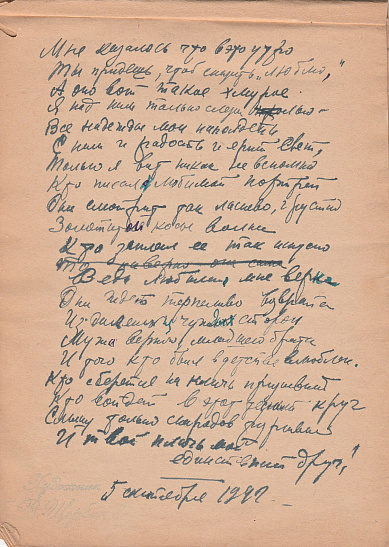 Мне казалось что в это утро
Ты придешь, чтоб сказать „люблю,"
А оно вот такое хмурое
Я над ним только слезы
Все надежды мои
С ним и радость и яркий свет,
Только я вот никак не вспомню
Кто писал любимой портрет
Она смотрит так ласково, грустно
Золотистой косы волна
Кто
она сама
Ведь любимая мне верна
Она ждет терпеливо возврата
Из далеких чужих сторон
Мужа верного, младшего брата
И того кто был в детстве влюблен.
Кто сберется на
Кто войдет в этот тесный круг
Слышу только снарядов
И твой плач мой
единственный друг!
5 сентября 1942.